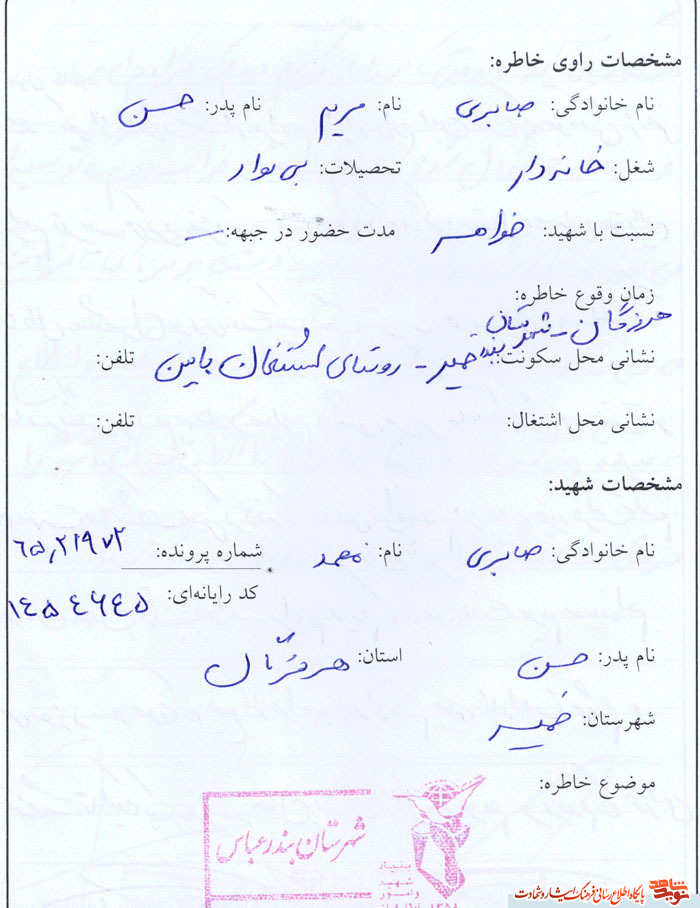 مشخصات راوی خاطره:
نام خانوادگی: صابری نام: مریم نام پدر: حسن
شغل: خانه دار تحصیلات: بی سواد
نسبت با شهید: خواهر مدت حضور در جبهه: —
زمان وقوع خاطره:
هرمزگان - شهرستان بندر
نشانی محل سکونت: خمیر - روستای پایین تلفن:
نشانی محل اشتغال: تلفن:
مشخصات شهید:
نام خانوادگی: صابری نام: محمد شماره پرونده: ۶۵,۲۱۹۷۲
کد رایانه‌ای: ۱۴۵۴۶۴۵
نام پدر: حسن استان: هرمزگان
شهرستان: خمیر
موضوع خاطره:
شهرستان بندرعباس
بنیاد
شهید
و امور
نوید شاهد پایگاه اطلاع رسانی فرهنگ ایثار و شهادت